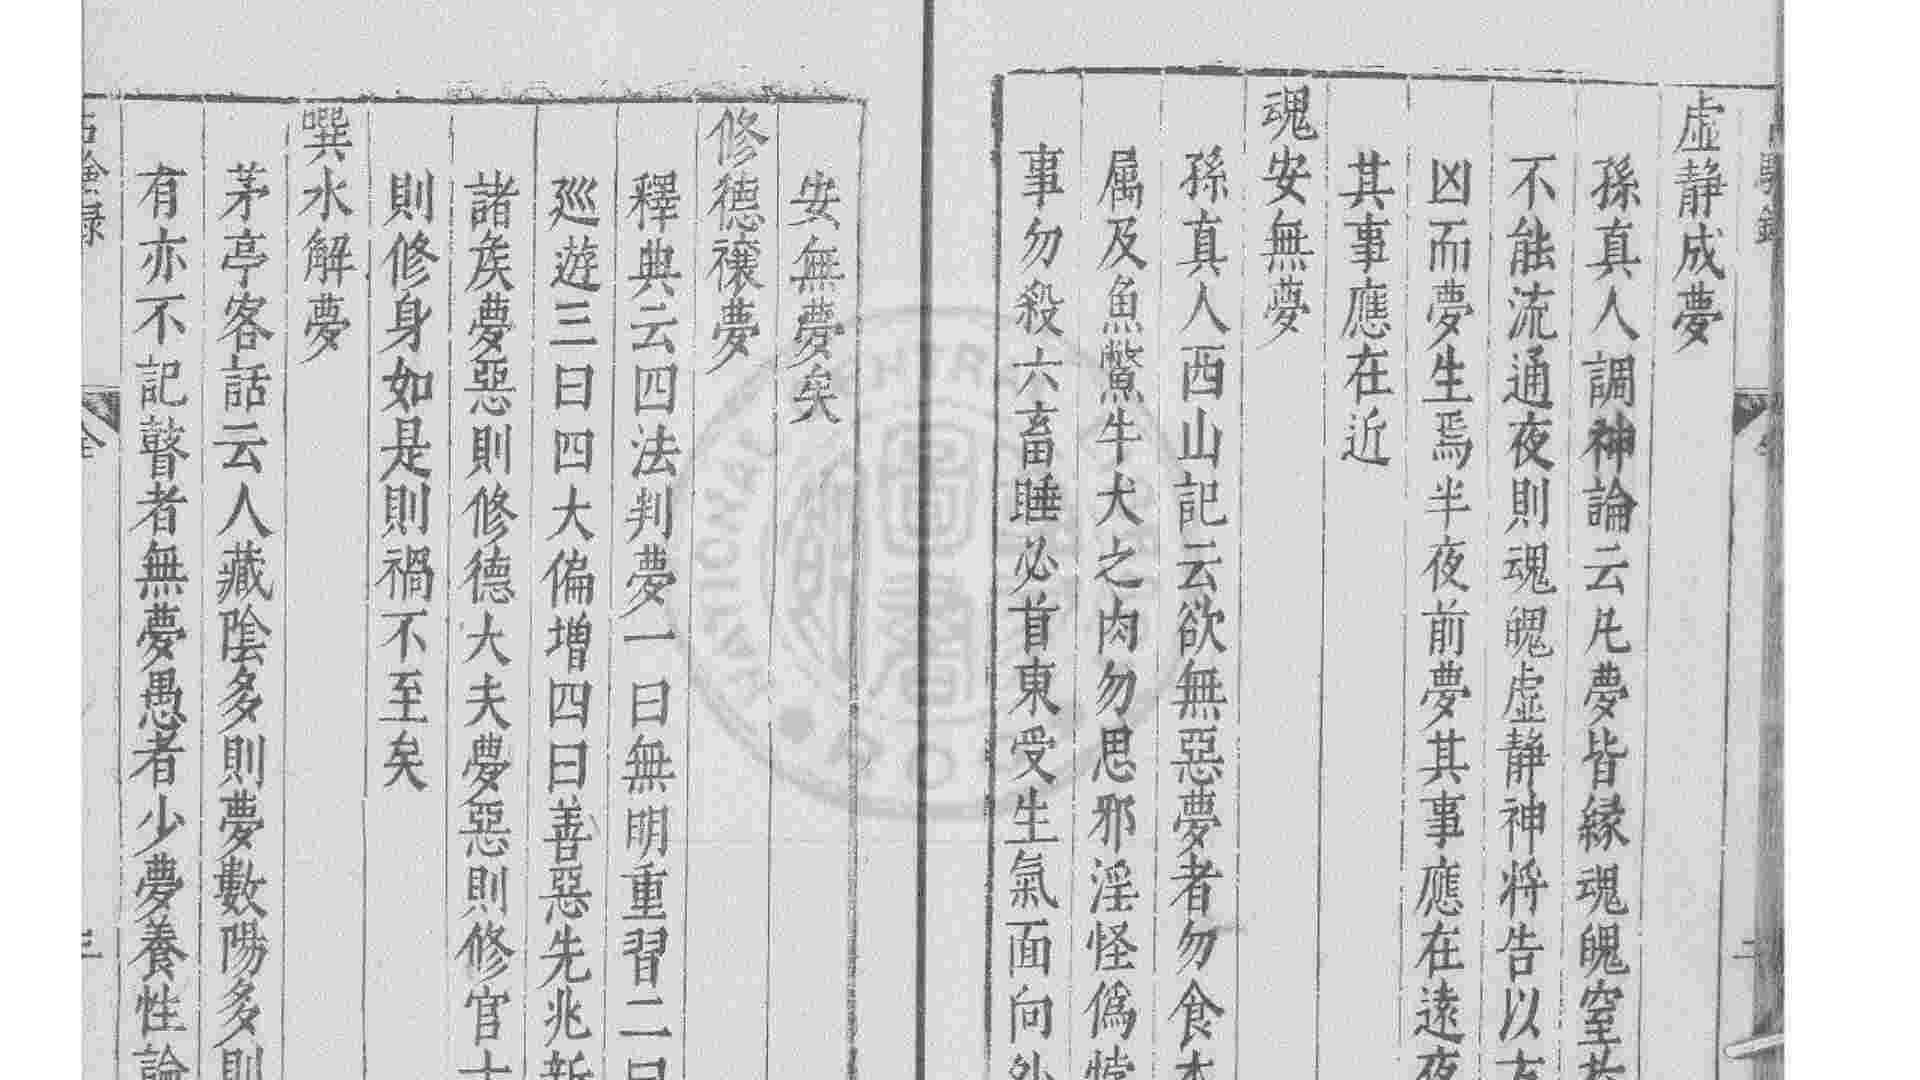 虛靜成夢
孫真人調神論云凡夢皆緣魂魄窒於
不能流通夜則魂魄虛靜神將告以吉
凶而夢生焉半夜前夢其事應在遠夜
其事應在近
魂安無夢
孫真人西山記云欲無惡夢者勿食本
屬及魚鱉牛犬之肉勿思邪淫怪僞
事勿殺六畜睡必首東受生氣面向外
安無夢矣
修德禳夢
釋典云四法判夢一曰無明熏習二曰
巡遊三曰四大偏增四曰善惡先兆新
諸矦夢惡則修德大夫夢惡則修官士
則修身如是則禍不至矣
噀水解夢
茅亭客話云人藏陰多則夢數陽多則
有亦不記瞽者無夢愚者少夢養性論
NATIONAL CENTRAL